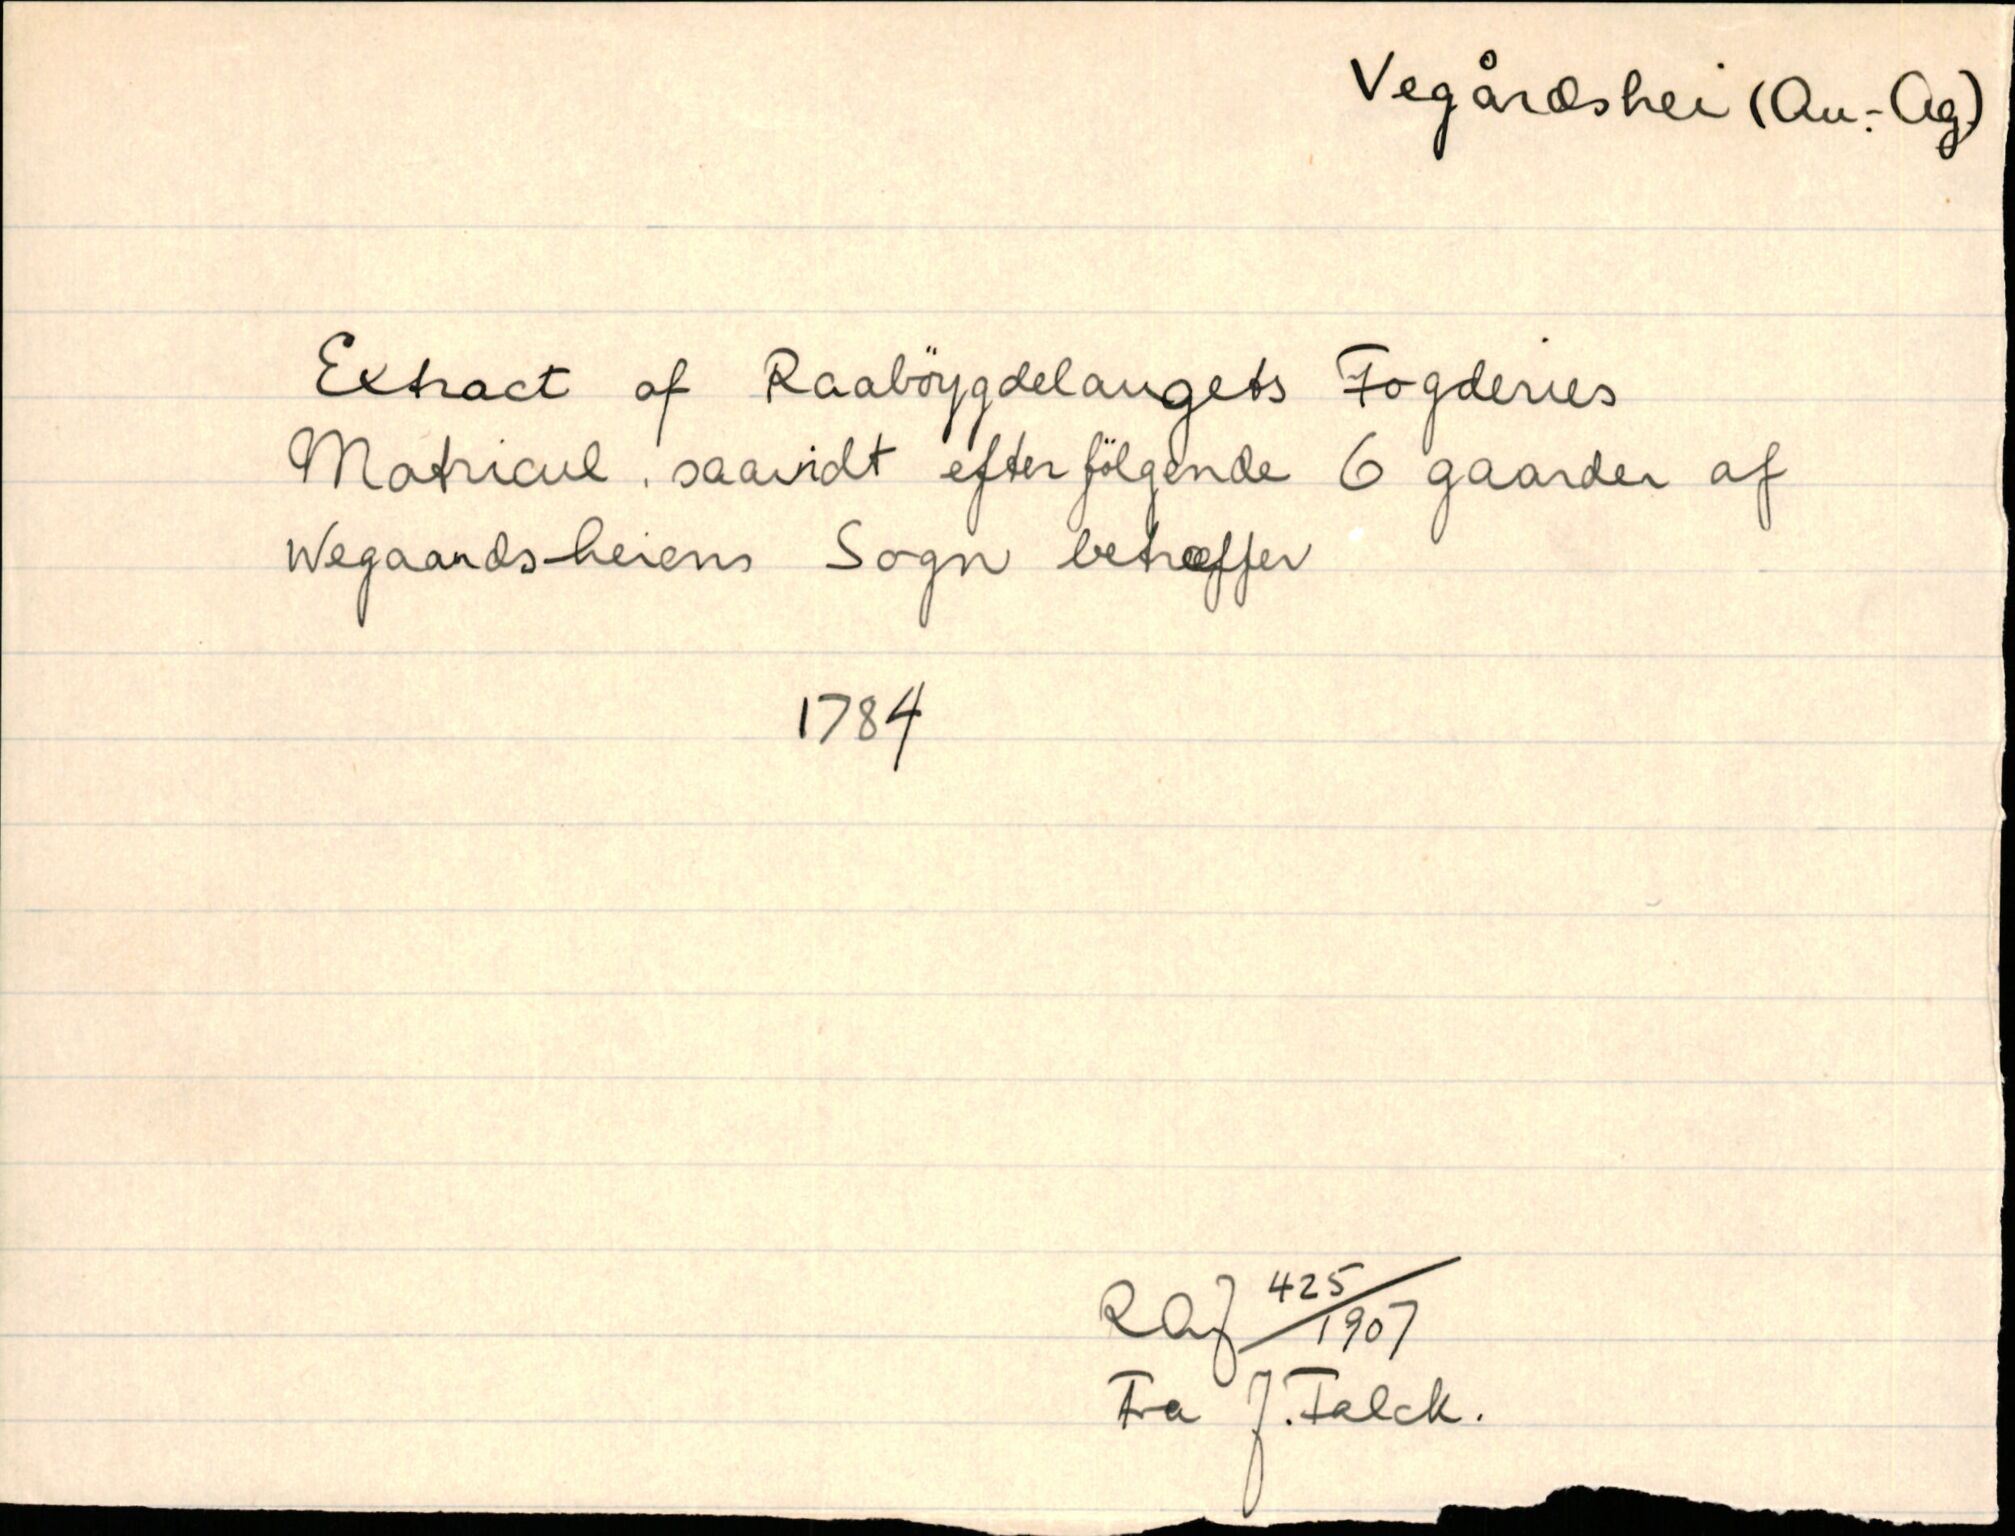 Vegårdshei (Au.-Ag.)
Extract af Raaböygdelaugets Fogderies
Matricul. saavidt efterfölgende 6 gaarder af
Wegaardsheiens Sogn betræffer
1784
RAJ 425/1907
Fra J. Falck.